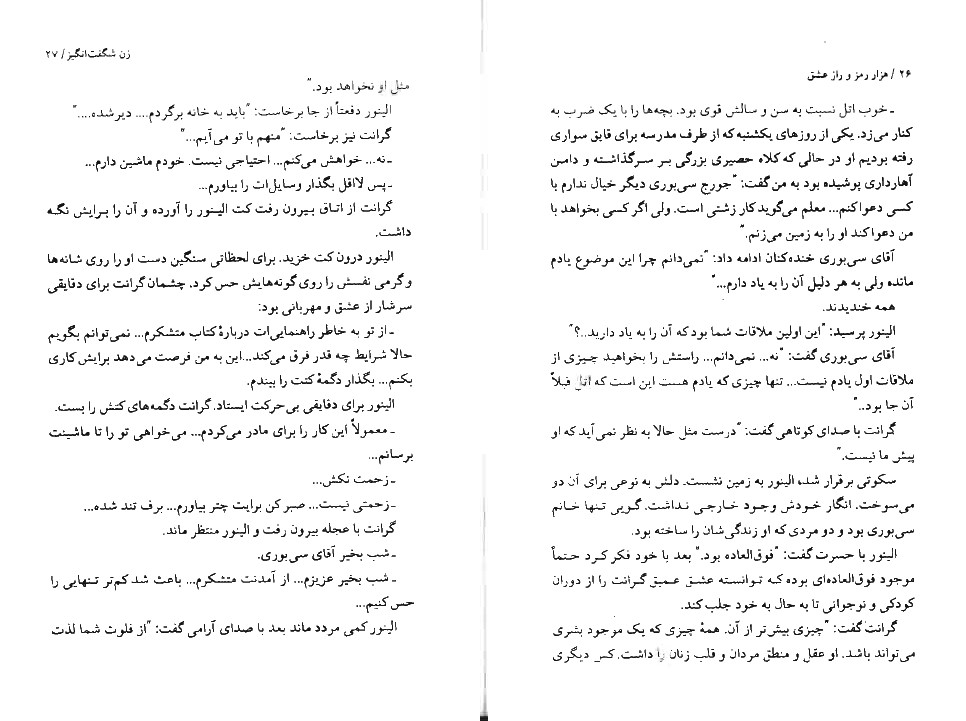 ۲۶ / هزار رمز و راز عشق
ـ خوب اتل نسبت به سن و سالش قوی بود. بچه‌ها را با یک ضرب به
کنار می‌زد. یکی از روزهای یکشنبه که از طرف مدرسه برای قایق سواری
رفته بودیم او در حالی که کلاه حصیری بزرگی بر سرگذاشته و دامن
آهارداری پوشیده بود به من گفت: "جورج سی‌بوری دیگر خیال ندارم با
کسی دعوا کنم... معلم می‌گوید کار زشتی است. ولی اگر کسی بخواهد با
من دعوا کند او را به زمین می‌زنم."
آقای سی‌بوری خنده‌کنان ادامه داد: "نمی‌دانم چرا این موضوع یادم
مانده ولی به هر دلیل آن را به یاد دارم..."
همه خندیدند.
الینور پرسید: "این اولین ملاقات شما بود که آن را به یاد دارید..؟"
آقای سی‌بوری گفت: "نه... نمی‌دانم... راستش را بخواهید چیزی از
ملاقات اول یادم نیست... تنها چیزی که یادم هست این است که اتل قبلاً
آن جا بود.."
گرانت با صدای کوتاهی گفت: "درست مثل حالا به نظر نمی‌آید که او
پیش ما نیست."
سکوتی برقرار شده الینور به زمین نشست. دلش به نوعی برای آن دو
می‌سوخت. انگار خودش وجود خارجی نداشت. گویی تنها خانم
سی‌بوری بود و دو مردی که او زندگی‌شان را ساخته بود.
الینور با حسرت گفت: "فوق‌العاده بود." بعد با خود فکر کرد حتماً
موجود فوق‌العاده‌ای بوده که توانسته عشق عمیق گرانت را از دوران
کودکی و نوجوانی تا به حال به خود جلب کند.
گرانت گفت: "چیزی بیش‌تر از آن. همهٔ چیزی که یک موجود بشری
می‌تواند باشد. او عقل و منطق مردان و قلب زنان را داشت. کس دیگری
زن شگفت‌انگیز / ۲۷
مثل او نخواهد بود."
الینور دفعتاً از جا برخاست: "باید به خانه برگردم.... دیر شده...."
گرانت نیز برخاست: "منهم با تو می‌آیم..."
ـ نه... خواهش می‌کنم... احتیاجی نیست. خودم ماشین دارم...
ـ پس لااقل بگذار وسایل‌ات را بیاورم...
گرانت از اتاق بیرون رفت کت الینور را آورده و آن را برایش نگه
داشت.
الینور درون کت خزید. برای لحظاتی سنگین دست او را روی شانه‌ها
وگرمی نفسش را روی گونه‌هایش حس کرد. چشمان گرانت برای دقایقی
سرشار از عشق و مهربانی بود:
ـ از تو به خاطر راهنمایی‌ات دربارهٔ کتاب متشکرم... نمی‌توانم بگویم
حالا شرایط چه قدر فرق می‌کند...این به من فرصت می‌دهد برایش کاری
بکنم... بگذار دگمهٔ کتت را ببندم.
الینور برای دقایقی بی‌حرکت ایستاد. گرانت دگمه‌های کتش را بست.
ـ معمولاً این کار را برای مادر می‌کردم... می‌خواهی تو را تا ماشینت
برسانم...
ـ زحمت نکش...
ـ زحمتی نیست... صبر کن برایت چتر بیاورم... برف تند شده...
گرانت با عجله بیرون رفت و الینور منتظر ماند.
ـ شب بخیر آقای سی‌بوری.
ـ شب بخیر عزیزم... از آمدنت متشکرم... باعث شد کم‌تر تنهایی را
حس کنیم...
الینور کمی مردد ماند بعد با صدای آرامی گفت: "از فلوت شما لذت